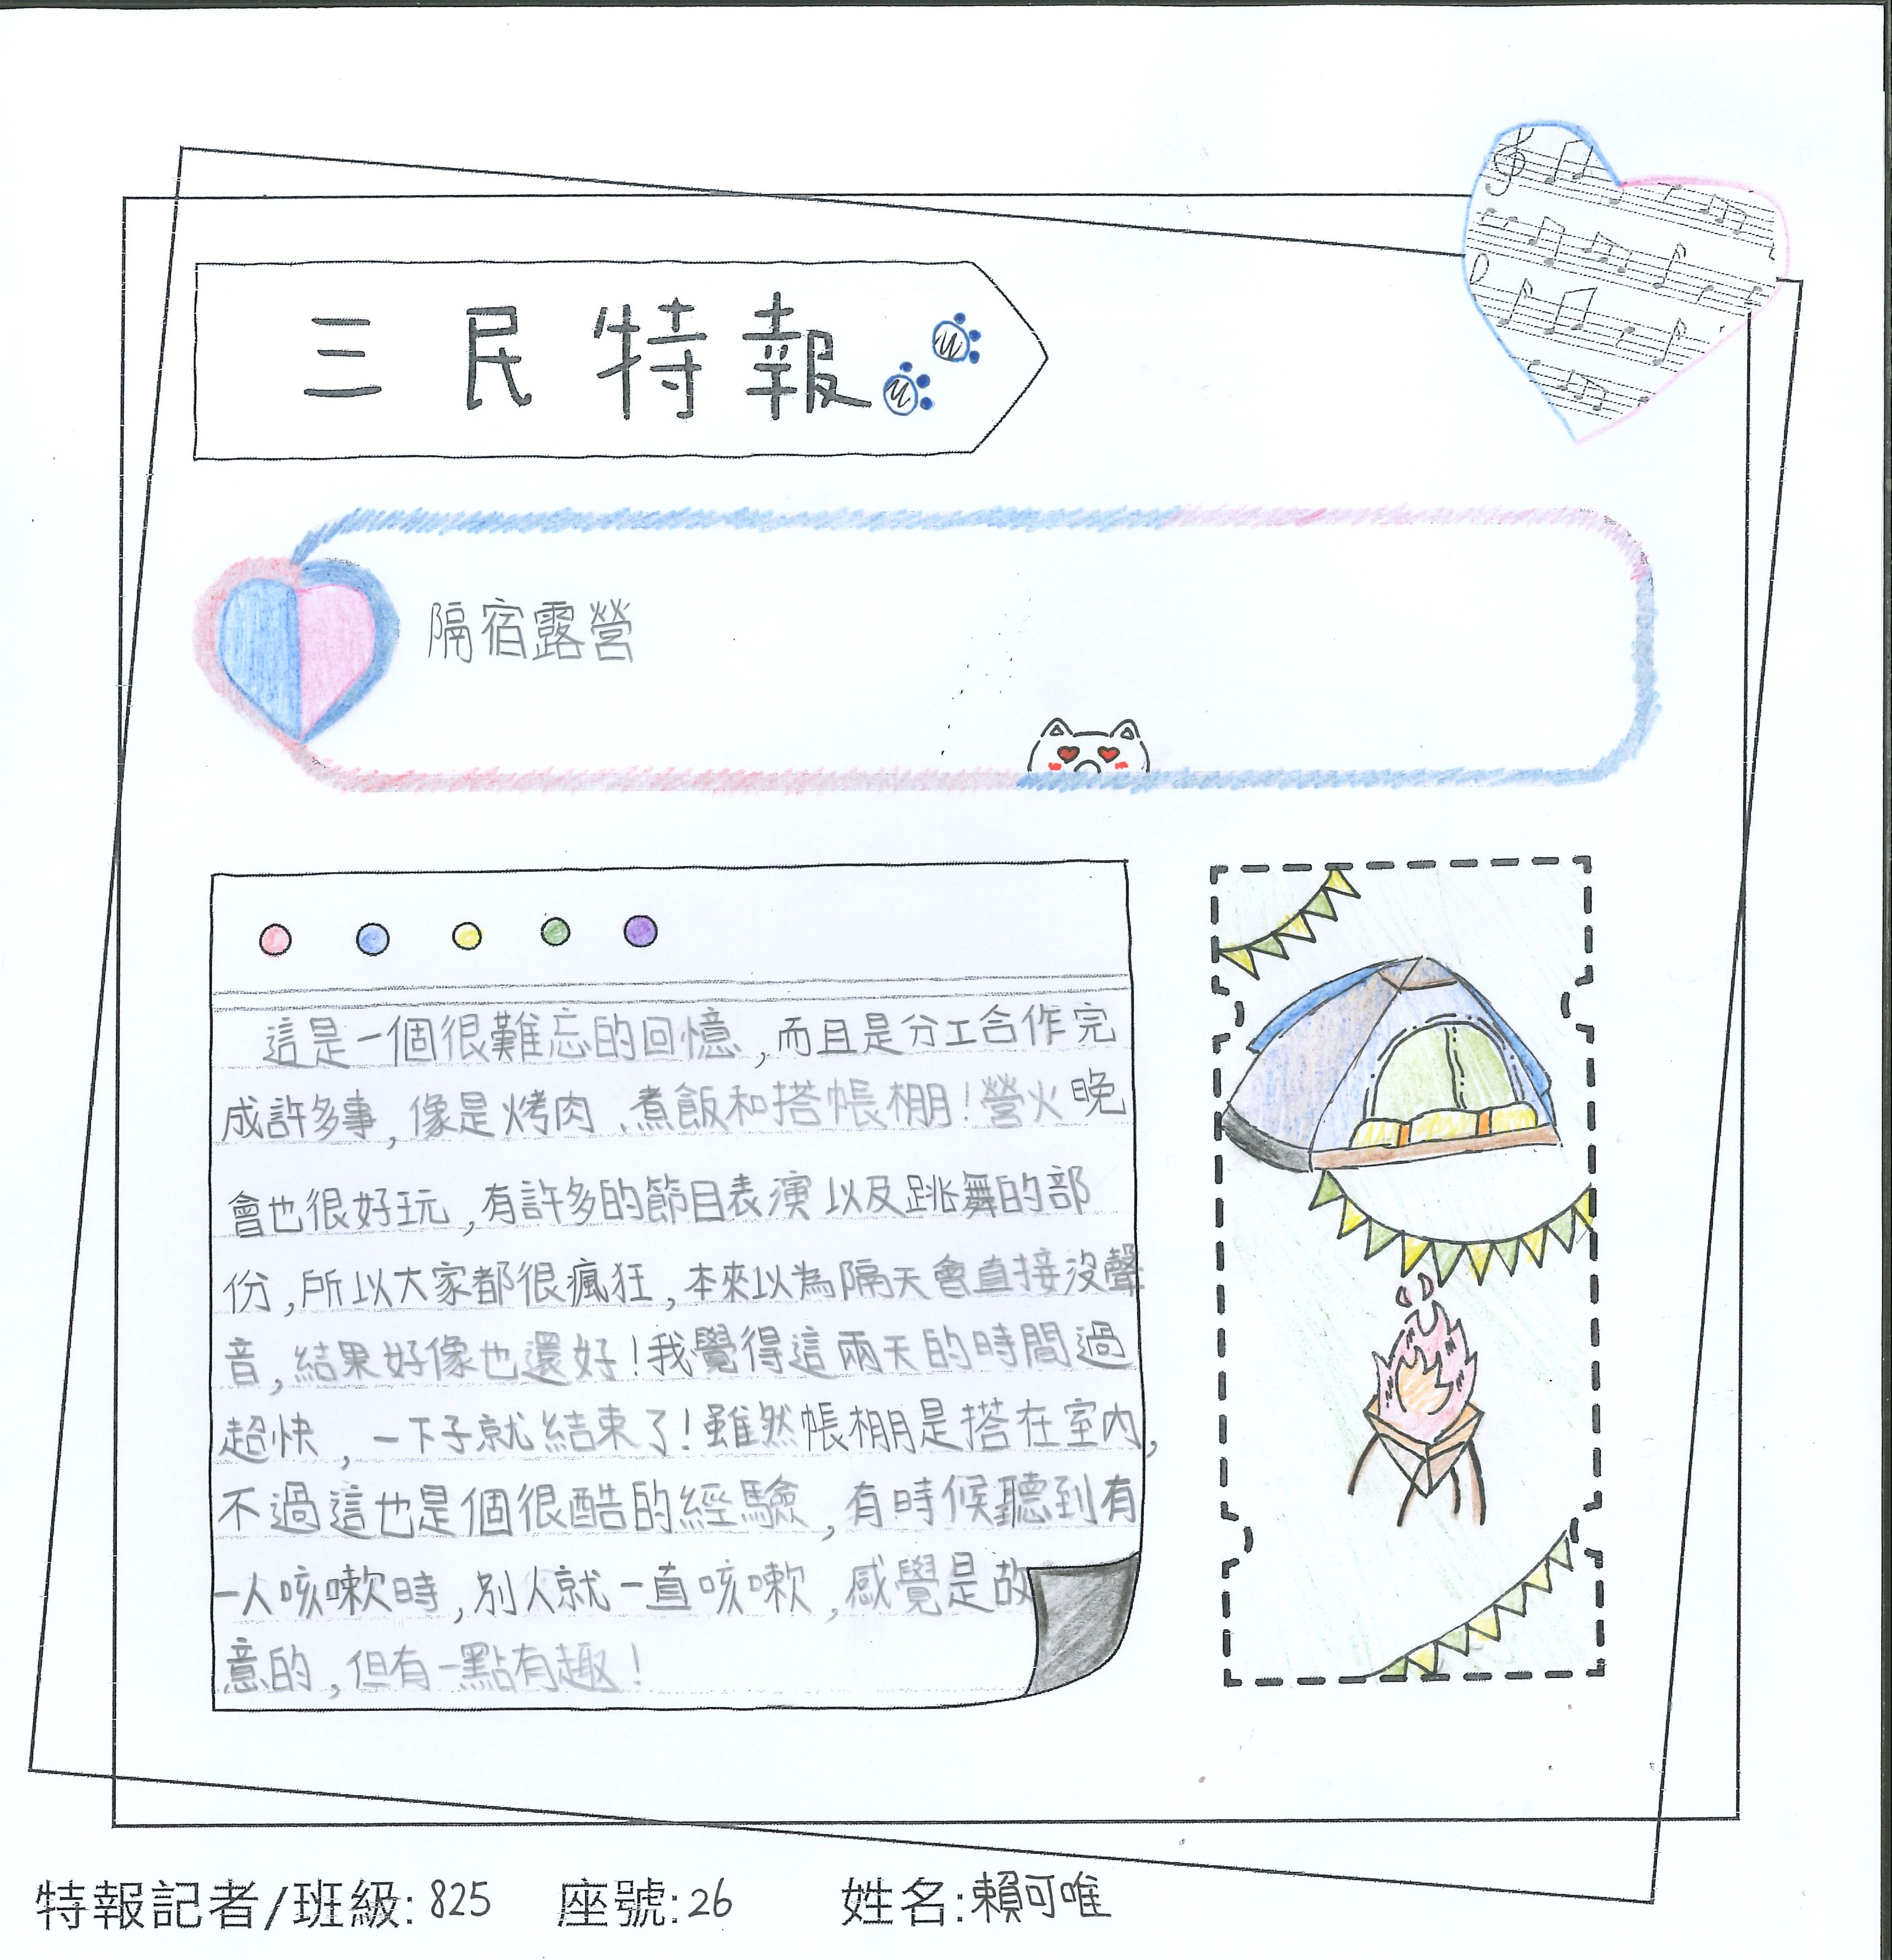 三民特報
隔宿露營
這是一個很難忘的回憶,而且是分工合作完
成許多事,像是烤肉、煮飯和搭帳棚!營火晚
會也很好玩,有許多的節目表演以及跳舞的部
份,所以大家都很瘋狂,本來以為隔天會直接沒聲
音,結果好像也還好!我覺得這兩天的時間過
超快,一下子就結束了!雖然帳棚是搭在室內,
不過這也是個很酷的經驗,有時候聽到有
一人咳嗽時,別人就一直咳嗽,感覺是故
意的,但有一點有趣!
特報記者/班級:825 座號:26 姓名:賴可唯